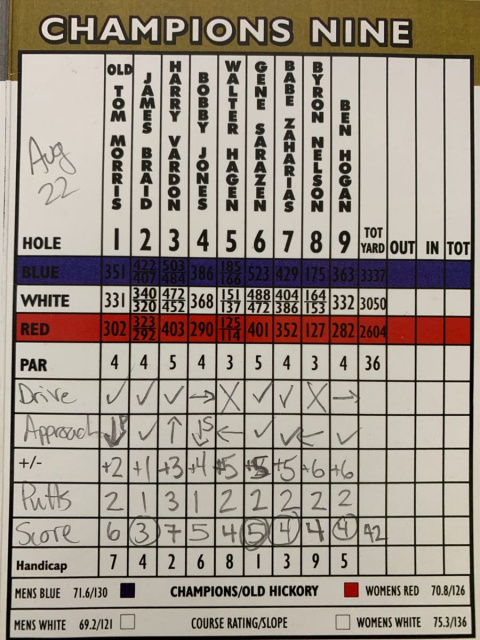 CHAMPIONS NINE
Aug 22
OLD TOM MORRIS
JAMES BRAID
HARRY VARDON
BOBBY JONES
WALTER HAGEN
GENE SARAZEN
BABE ZAHARIAS
BYRON NELSON
BEN HOGAN
HOLE 1 2 3 4 5 6 7 8 9 TOT YARD OUT IN TOT
BLUE 351 422 407 503 484 386 185 166 523 429 175 363 3337
WHITE 331 340 320 472 452 368 151 137 488 472 404 386 164 153 332 3050
RED 302 323 292 403 290 125 114 401 352 127 282 2604
PAR 4 4 5 4 3 5 4 3 4 36
Drive ✓ ✓ ✓ → X ✓ ✓ X →
Approach ↓ ✓ ↑ ↓S ← ✓ ✓ ← ✓
+/- +2 +1 +3 +4 +5 +5 +5 +6 +6
Putts 2 1 3 1 2 2 2 2 2
Score 6 3 7 5 4 5 4 4 4 42
Handicap 7 4 2 6 8 1 3 9 5
MENS BLUE 71.6/130 CHAMPIONS/OLD HICKORY WOMENS RED 70.8/126
MENS WHITE 69.2/121 COURSE RATING/SLOPE WOMENS WHITE 75.3/136